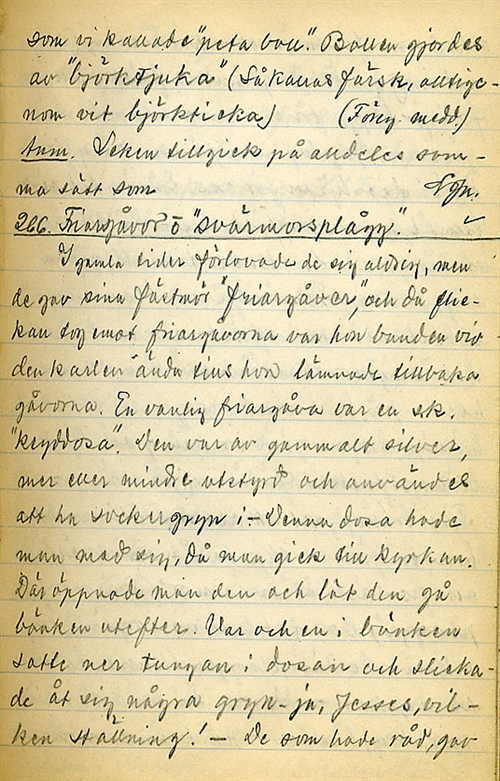 som vi kallade "peta boll". Bollen gjordes
av "björktjuka" (Så kallas färsk, alltige-
nom vit björkticka) (Föreg. medd.)
tum. Leken tillgick på alldeles sam-
ma sätt som
266. Friargåvor o "svärmorsplågg".
I gamla tider förlovade de sig aldrig, men
de gav sina fästmör "friargåvor", och då flic-
kan tog emot friargåvorna var hon bunden vid
den karlen ända tills hon lämnade tillbaka
gåvorna. En vanlig friargåva var en s.k.
"kryddosa". Den var av gammalt silver,
mer eller mindre utsydd och användes
att ha sockergryn i. - Denna dosa hade
man med sig, då man gick till kyrkan.
Där öppnade man den och lät den gå
bänken utefter. Var och en i bänken
satte ner tungan i dosan och slicka-
de åt sig några gryn - ja, Jesses, vil-
ken ställning! - De som hade råd, gav